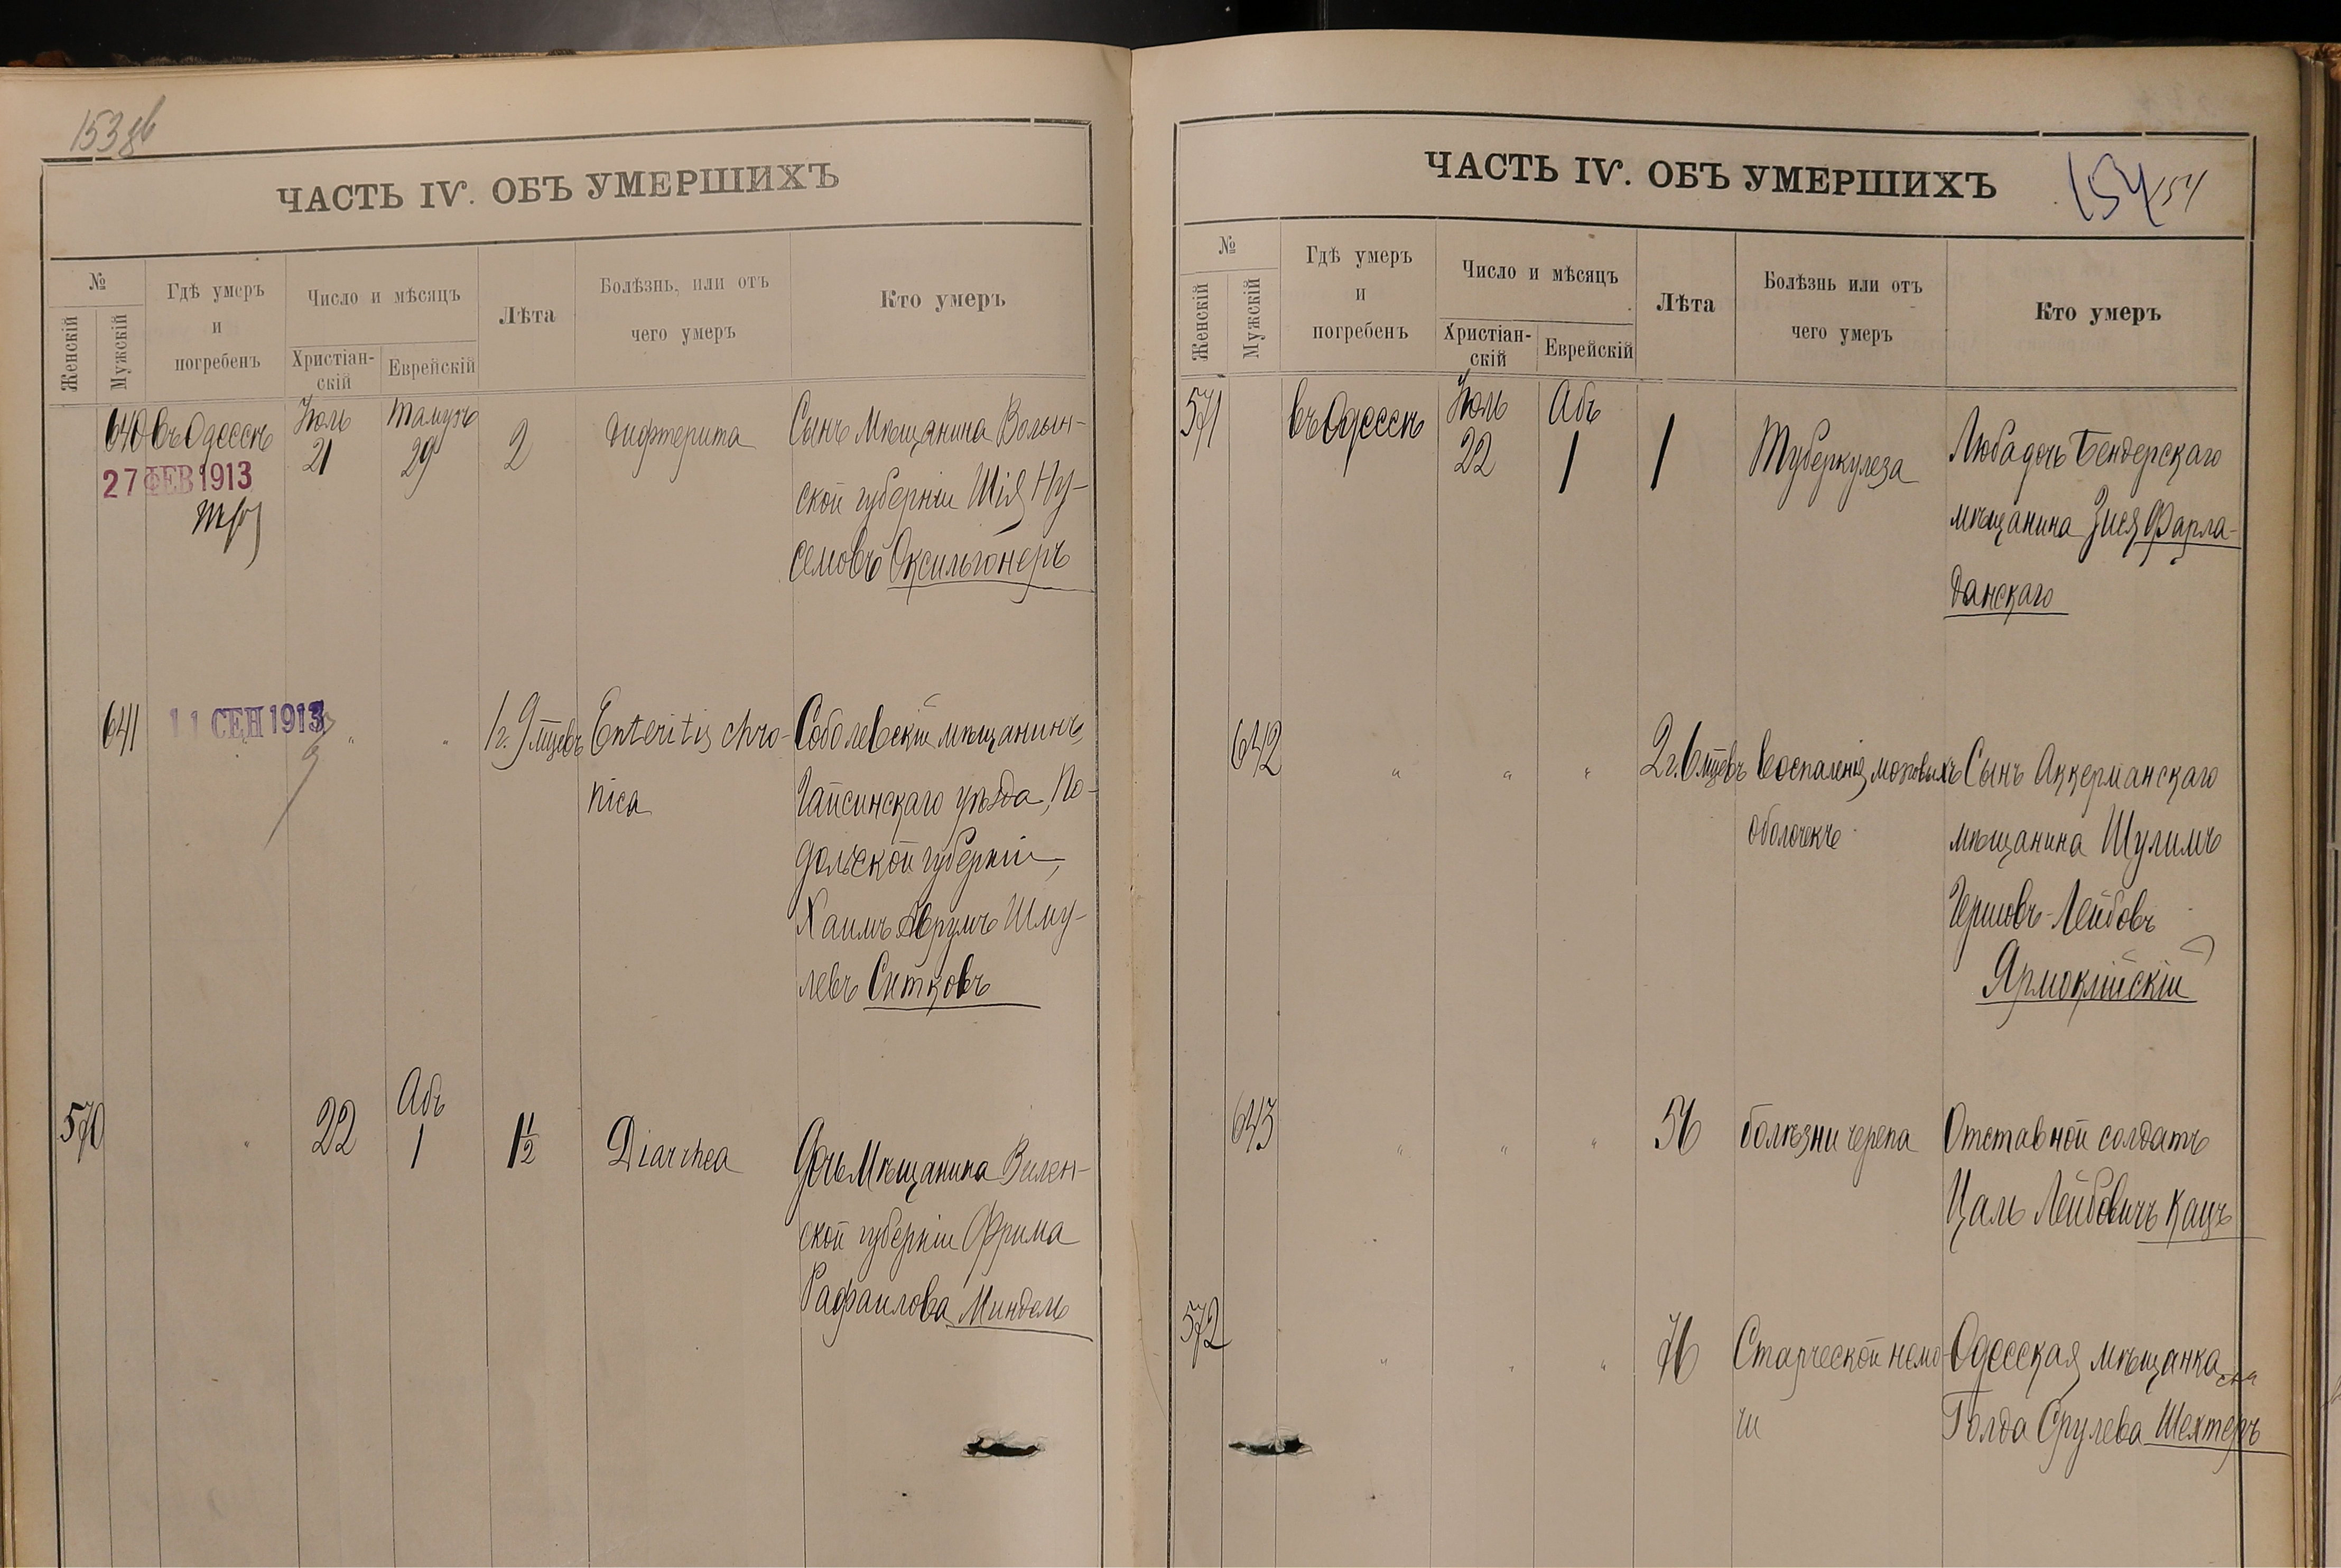 153 об
ЧАСТЬ IV. ОБЪ УМЕРШИХЪ
№
Женскій
Мужскій
Гдѣ умеръ
и
погребенъ
Число и мѣсяцъ
Христіан-
скій
Еврейскій
Лѣта
Болѣзнь, или отъ
чего умеръ
Кто умеръ
640 въ Одессѣ Іюль 21 Тамузъ 29 2 Дифтерита Сынъ Мѣщанина Волын-
27 ФЕВ 1913
ской губерніи Шія Ну-
семовъ Оксильгонеръ
641 11 СЕН 1913 " " 1 г. 9 мцевъ Enteritis chro- Соболевскій мѣщанинъ,
nica Гайсинскаго уѣзда, По-
дольской губерніи,
Хаимъ Аврумъ Шму-
левъ Ситковъ
570 " 22 Абъ 1 1 1/2 Diarrhea Дочь Мѣщанина Вилен-
ской губерніи Фрима
Рафаилова Миндель
ЧАСТЬ IV. ОБЪ УМЕРШИХЪ
154 154
№
Женскій
Мужскій
Гдѣ умеръ
и
погребенъ
Число и мѣсяцъ
Христіан-
скій
Еврейскій
Лѣта
Болѣзнь или отъ
чего умеръ
Кто умеръ
571 въ Одессѣ Іюль 22 Абъ 1 1 Туберкулеза Люба дочь Бендерскаго
мѣщанина Зися Фарла-
данскаго
642 " " " 2 г. 6 мцевъ Воспаленія мозговыхъ Сынъ Аккерманскаго
оболочекъ мѣщанина Шулимъ
Гершовъ-Лейбовъ
Ярмоклійскій
643 " " " 56 болѣзни черепа Отставной солдатъ
Цаль Лейбовичъ Кацъ
572 " " " 76 Старческой немо- Одесская мѣщанка
чи Голда Срулева Шехтеръ